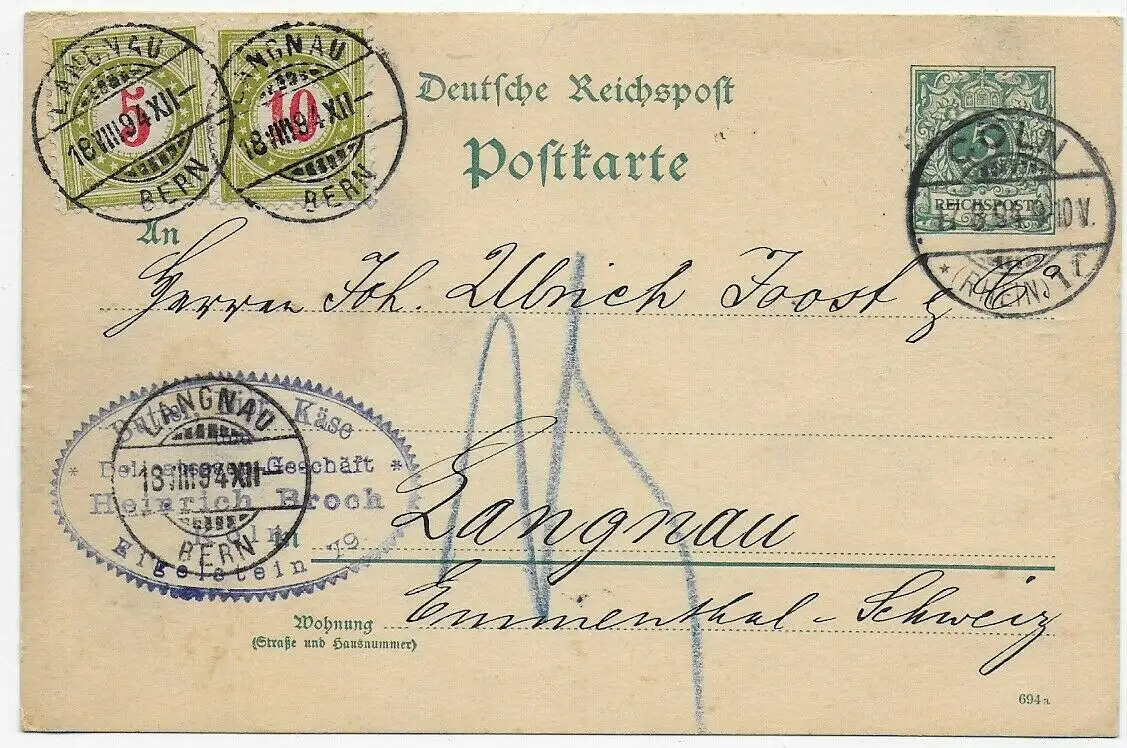 LANGNAU
5
18 VIII 94 XII–
BERN
LANGNAU
10
18 VIII 94 XII–
BERN
Deutsche Reichspost
Postkarte
5
REICHSPOST
CÖLN
17. 8. 94. 9–10 V.
* (RHEIN) 1 f
An
Herrn Joh. Ulrich Joost &
Butter Käse
Delicatessen-Geschäft
Heinrich Broch
Cöln
Eigelstein 79.
LANGNAU
18 VIII 94 XII–
BERN
in Langnau
Emmenthal - Schweiz
Wohnung
(Straße und Hausnummer)
694a